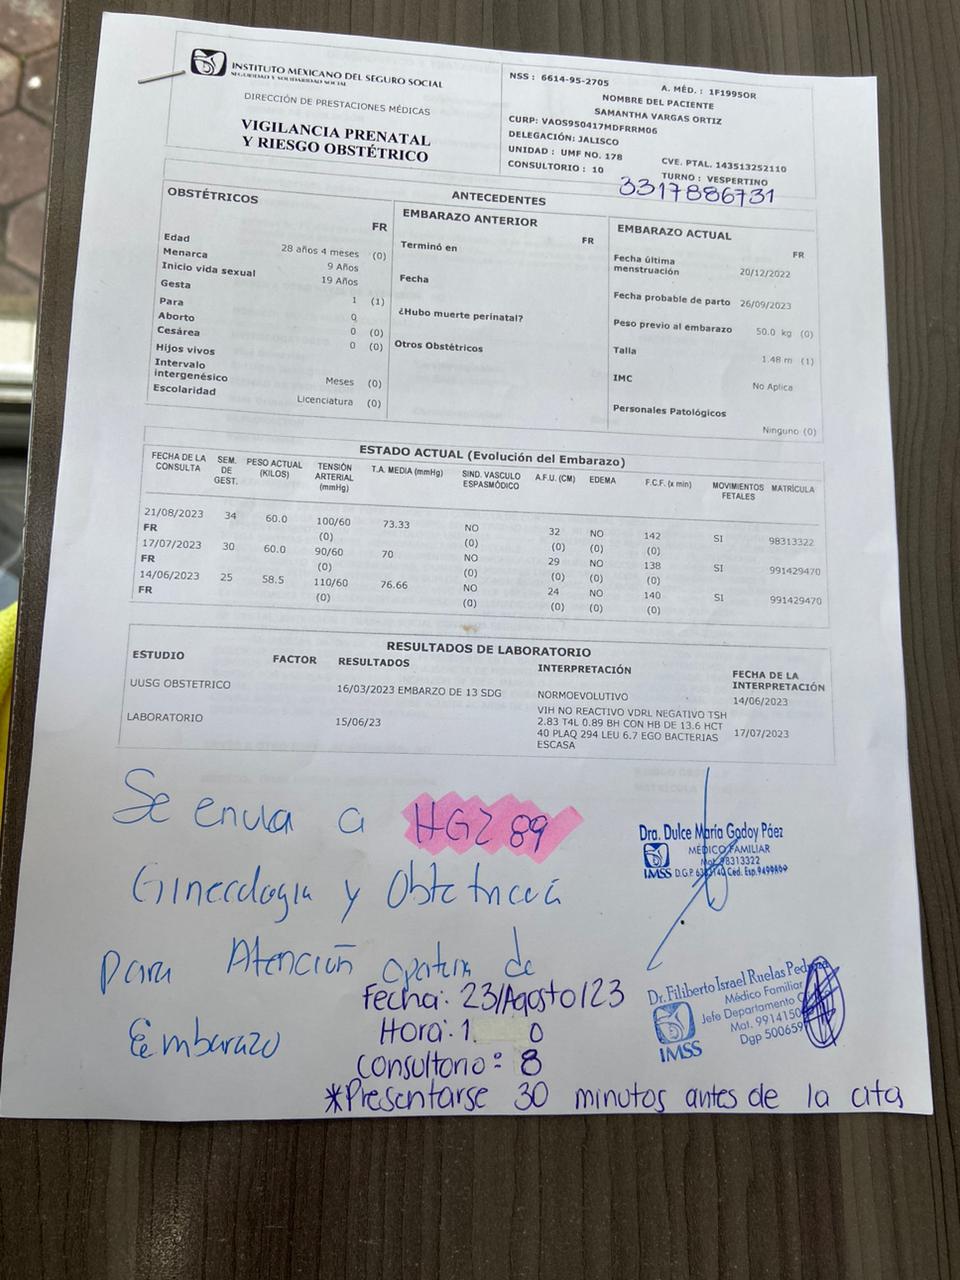 INSTITUTO MEXICANO DEL SEGURO SOCIAL
SEGURIDAD Y SOLIDARIDAD SOCIAL
DIRECCIÓN DE PRESTACIONES MÉDICAS
VIGILANCIA PRENATAL
Y RIESGO OBSTÉTRICO
NSS : 6614-95-2705 A. MÉD. : 1F1995OR
NOMBRE DEL PACIENTE
SAMANTHA VARGAS ORTIZ
CURP: VAOS950417MDFRRM06
DELEGACIÓN: JALISCO
UNIDAD : UMF NO. 178 CVE. PTAL. 143513252110
CONSULTORIO : 10 TURNO : VESPERTINO
3317886731
ANTECEDENTES
OBSTÉTRICOS
FR
Edad 28 años 4 meses (0)
Menarca 9 Años
Inicio vida sexual 19 Años
Gesta 1 (1)
Para 0
Aborto 0 (0)
Cesárea 0 (0)
Hijos vivos
Intervalo
intergenésico Meses (0)
Escolaridad Licenciatura (0)
EMBARAZO ANTERIOR
FR
Terminó en
Fecha
¿Hubo muerte perinatal?
Otros Obstétricos
EMBARAZO ACTUAL
FR
Fecha última
menstruación 20/12/2022
Fecha probable de parto 26/09/2023
Peso previo al embarazo 50.0 kg (0)
Talla 1.48 m (1)
IMC No Aplica
Personales Patológicos
Ninguno (0)
ESTADO ACTUAL (Evolución del Embarazo)
FECHA DE LA CONSULTA SEM. DE GEST. PESO ACTUAL (KILOS) TENSIÓN ARTERIAL (mmHg) T.A. MEDIA (mmHg) SIND. VASCULO ESPASMÓDICO A.F.U. (CM) EDEMA F.C.F. (x min) MOVIMIENTOS FETALES MATRÍCULA
21/08/2023 34 60.0 100/60 73.33 NO 32 NO 142 SI 98313322
FR (0) (0) (0) (0) (0)
17/07/2023 30 60.0 90/60 70 NO 29 NO 138 SI 991429470
FR (0) (0) (0) (0) (0)
14/06/2023 25 58.5 110/60 76.66 NO 24 NO 140 SI 991429470
FR (0) (0) (0) (0) (0)
RESULTADOS DE LABORATORIO
ESTUDIO FACTOR RESULTADOS INTERPRETACIÓN FECHA DE LA INTERPRETACIÓN
UUSG OBSTETRICO 16/03/2023 EMBARZO DE 13 SDG NORMOEVOLUTIVO 14/06/2023
LABORATORIO 15/06/23 VIH NO REACTIVO VDRL NEGATIVO TSH
2.83 T4L 0.89 BH CON HB DE 13.6 HCT
40 PLAQ 294 LEU 6.7 EGO BACTERIAS 17/07/2023
ESCASA
Se envía a HGZ 89
Ginecología y Obstetricia
para Atención de
Embarazo
Fecha: 23/Agosto/23
Hora: 1 0
Consultorio: 8
*Presentarse 30 minutos antes de la cita
Dra. Dulce María Godoy Páez
MÉDICO FAMILIAR
Mat. 98313322
IMSS D.G.P. Ced. Esp.
Dr. Filiberto Israel Ruelas
Médico Familiar
Jefe Departamento
Mat. 9914150
Dgp 500659
IMSS